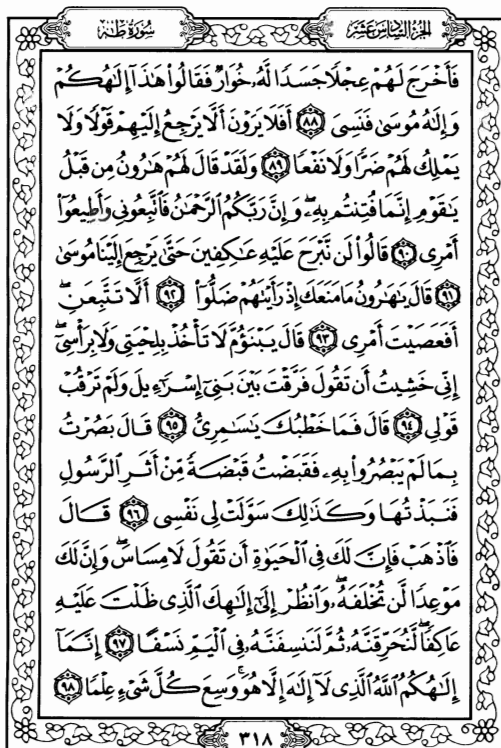 سُورَةُ طٰهٰ
الجُزْءُ السَّادِسَ عَشَرَ
فَأَخْرَجَ لَهُمْ عِجْلًا جَسَدًا لَّهُۥ خُوَارٌ فَقَالُوا۟ هَٰذَآ إِلَٰهُكُمْ
وَإِلَٰهُ مُوسَىٰ فَنَسِىَ ٨٨ أَفَلَا يَرَوْنَ أَلَّا يَرْجِعُ إِلَيْهِمْ قَوْلًا وَلَا
يَمْلِكُ لَهُمْ ضَرًّا وَلَا نَفْعًا ٨٩ وَلَقَدْ قَالَ لَهُمْ هَٰرُونُ مِن قَبْلُ
يَٰقَوْمِ إِنَّمَا فُتِنتُم بِهِۦ ۖ وَإِنَّ رَبَّكُمُ ٱلرَّحْمَٰنُ فَٱتَّبِعُونِى وَأَطِيعُوٓا۟
أَمْرِى ٩٠ قَالُوا۟ لَن نَّبْرَحَ عَلَيْهِ عَٰكِفِينَ حَتَّىٰ يَرْجِعَ إِلَيْنَا مُوسَىٰ
٩١ قَالَ يَٰهَٰرُونُ مَا مَنَعَكَ إِذْ رَأَيْتَهُمْ ضَلُّوٓا۟ ٩٢ أَلَّا تَتَّبِعَنِ ۖ
أَفَعَصَيْتَ أَمْرِى ٩٣ قَالَ يَبْنَؤُمَّ لَا تَأْخُذْ بِلِحْيَتِى وَلَا بِرَأْسِىٓ ۖ
إِنِّى خَشِيتُ أَن تَقُولَ فَرَّقْتَ بَيْنَ بَنِىٓ إِسْرَٰٓءِيلَ وَلَمْ تَرْقُبْ
قَوْلِى ٩٤ قَالَ فَمَا خَطْبُكَ يَٰسَٰمِرِىُّ ٩٥ قَالَ بَصُرْتُ
بِمَا لَمْ يَبْصُرُوا۟ بِهِۦ فَقَبَضْتُ قَبْضَةً مِّنْ أَثَرِ ٱلرَّسُولِ
فَنَبَذْتُهَا وَكَذَٰلِكَ سَوَّلَتْ لِى نَفْسِى ٩٦ قَالَ
فَٱذْهَبْ فَإِنَّ لَكَ فِى ٱلْحَيَوٰةِ أَن تَقُولَ لَا مِسَاسَ ۖ وَإِنَّ لَكَ
مَوْعِدًا لَّن تُخْلَفَهُۥ ۖ وَٱنظُرْ إِلَىٰٓ إِلَٰهِكَ ٱلَّذِى ظَلْتَ عَلَيْهِ
عَاكِفًا ۖ لَّنُحَرِّقَنَّهُۥ ثُمَّ لَنَنسِفَنَّهُۥ فِى ٱلْيَمِّ نَسْفًا ٩٧ إِنَّمَآ
إِلَٰهُكُمُ ٱللَّهُ ٱلَّذِى لَآ إِلَٰهَ إِلَّا هُوَ ۚ وَسِعَ كُلَّ شَىْءٍ عِلْمًا ٩٨
٣١٨